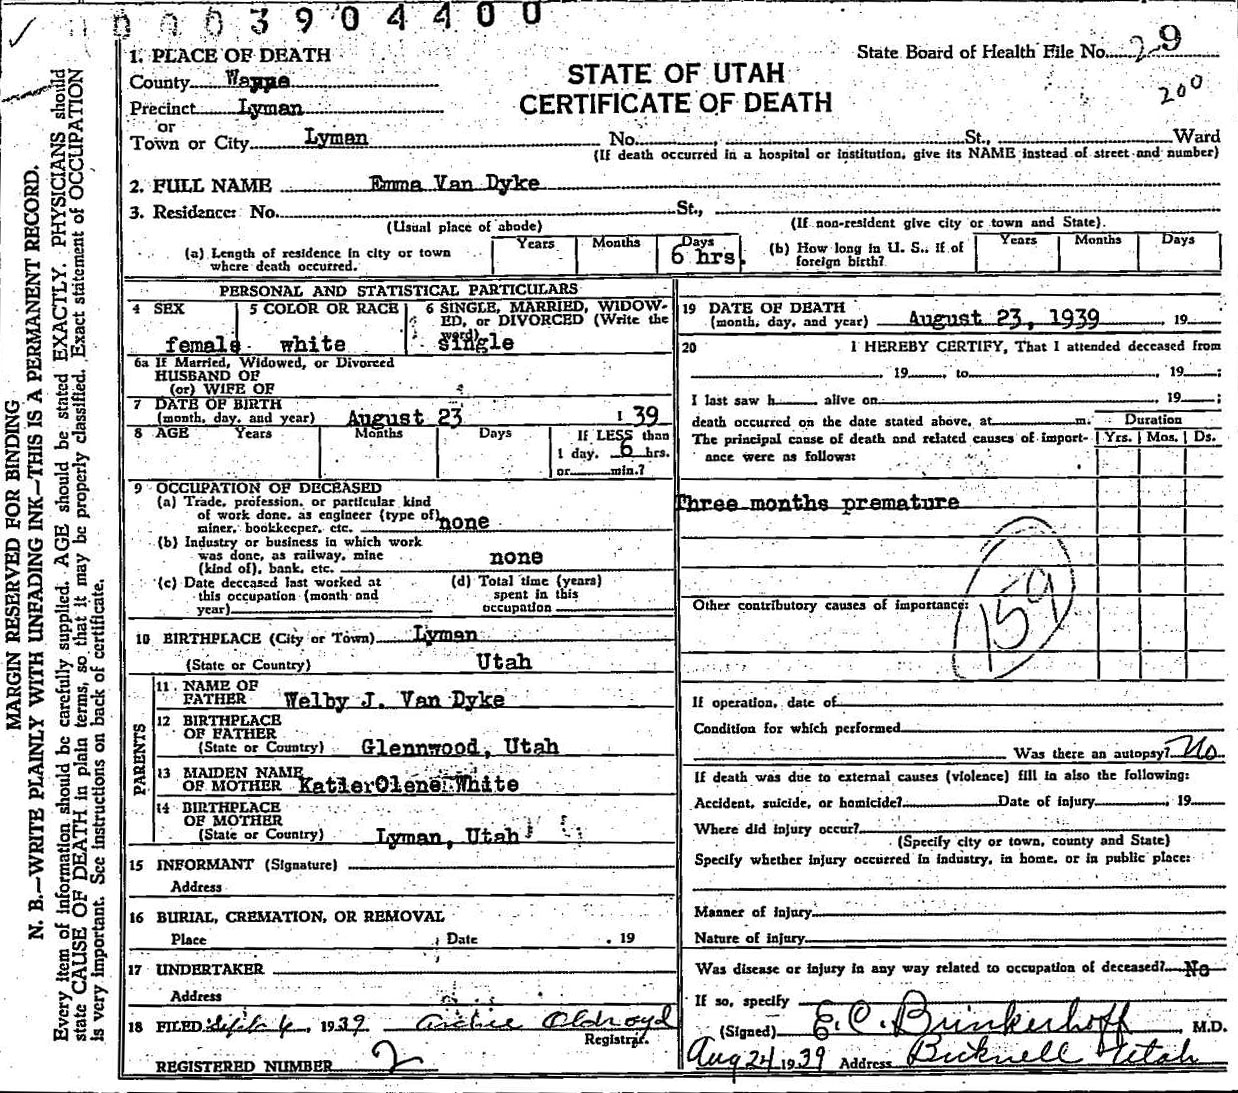 0003904400
State Board of Health File No. 29
200
STATE OF UTAH
CERTIFICATE OF DEATH
1. PLACE OF DEATH
County Wayne
Precinct Lyman
or
Town or City Lyman No. St., Ward
(If death occurred in a hospital or institution, give its NAME instead of street and number)
2. FULL NAME Emma Van Dyke
3. Residence: No. St.,
(Usual place of abode) (If non-resident give city or town and State).
(a) Length of residence in city or town where death occurred. Years Months Days 6 hrs.
(b) How long in U. S., if of foreign birth? Years Months Days
PERSONAL AND STATISTICAL PARTICULARS
4 SEX female
5 COLOR OR RACE white
6 SINGLE, MARRIED, WIDOWED, or DIVORCED (Write the word) single
6a If Married, Widowed, or Divorced
HUSBAND OF
(or) WIFE OF
7 DATE OF BIRTH
(month, day, and year) August 23 1 39
8 AGE Years Months Days If LESS than
1 day, 6 hrs.
or min.?
9 OCCUPATION OF DECEASED
(a) Trade, profession, or particular kind
of work done, as engineer (type of)
miner, bookkeeper, etc. none
(b) Industry or business in which work
was done, as railway, mine
(kind of), bank, etc. none
(c) Date deceased last worked at
this occupation (month and
year)
(d) Total time (years)
spent in this
occupation
10 BIRTHPLACE (City or Town) Lyman
(State or Country) Utah
PARENTS
11 NAME OF
FATHER Welby J. Van Dyke
12 BIRTHPLACE
OF FATHER
(State or Country) Glennwood, Utah
13 MAIDEN NAME
OF MOTHER Katie Olene White
14 BIRTHPLACE
OF MOTHER
(State or Country) Lyman, Utah
15 INFORMANT (Signature)
Address
16 BURIAL, CREMATION, OR REMOVAL
Place Date , 19
17 UNDERTAKER
Address
18 FILED Sept. 6, 1939. Archie Oldroyd
Registrar.
REGISTERED NUMBER 2
19 DATE OF DEATH
(month, day, and year) August 23, 1939, 19
20 I HEREBY CERTIFY, That I attended deceased from
, 19 , to , 19 ;
I last saw h alive on , 19 ;
death occurred on the date stated above, at m.
The principal cause of death and related causes of importance were as follows:
Duration
Yrs. Mos. Ds.
Three months premature
159
Other contributory causes of importance:
If operation, date of
Condition for which performed
Was there an autopsy? No
If death was due to external causes (violence) fill in also the following:
Accident, suicide, or homicide? Date of injury , 19
Where did injury occur?
(Specify city or town, county and State)
Specify whether injury occurred in industry, in home, or in public place:
Manner of injury
Nature of injury
Was disease or injury in any way related to occupation of deceased? No
If so, specify
(Signed) E. C. Brinkerhoff, M.D.
Aug 24 1939 Address Bicknell Utah
MARGIN RESERVED FOR BINDING
N. B.—WRITE PLAINLY WITH UNFADING INK—THIS IS A PERMANENT RECORD.
Every item of information should be carefully supplied. AGE should be stated EXACTLY. PHYSICIANS should
state CAUSE OF DEATH in plain terms, so that it may be properly classified. Exact statement of OCCUPATION
is very important. See instructions on back of certificate.